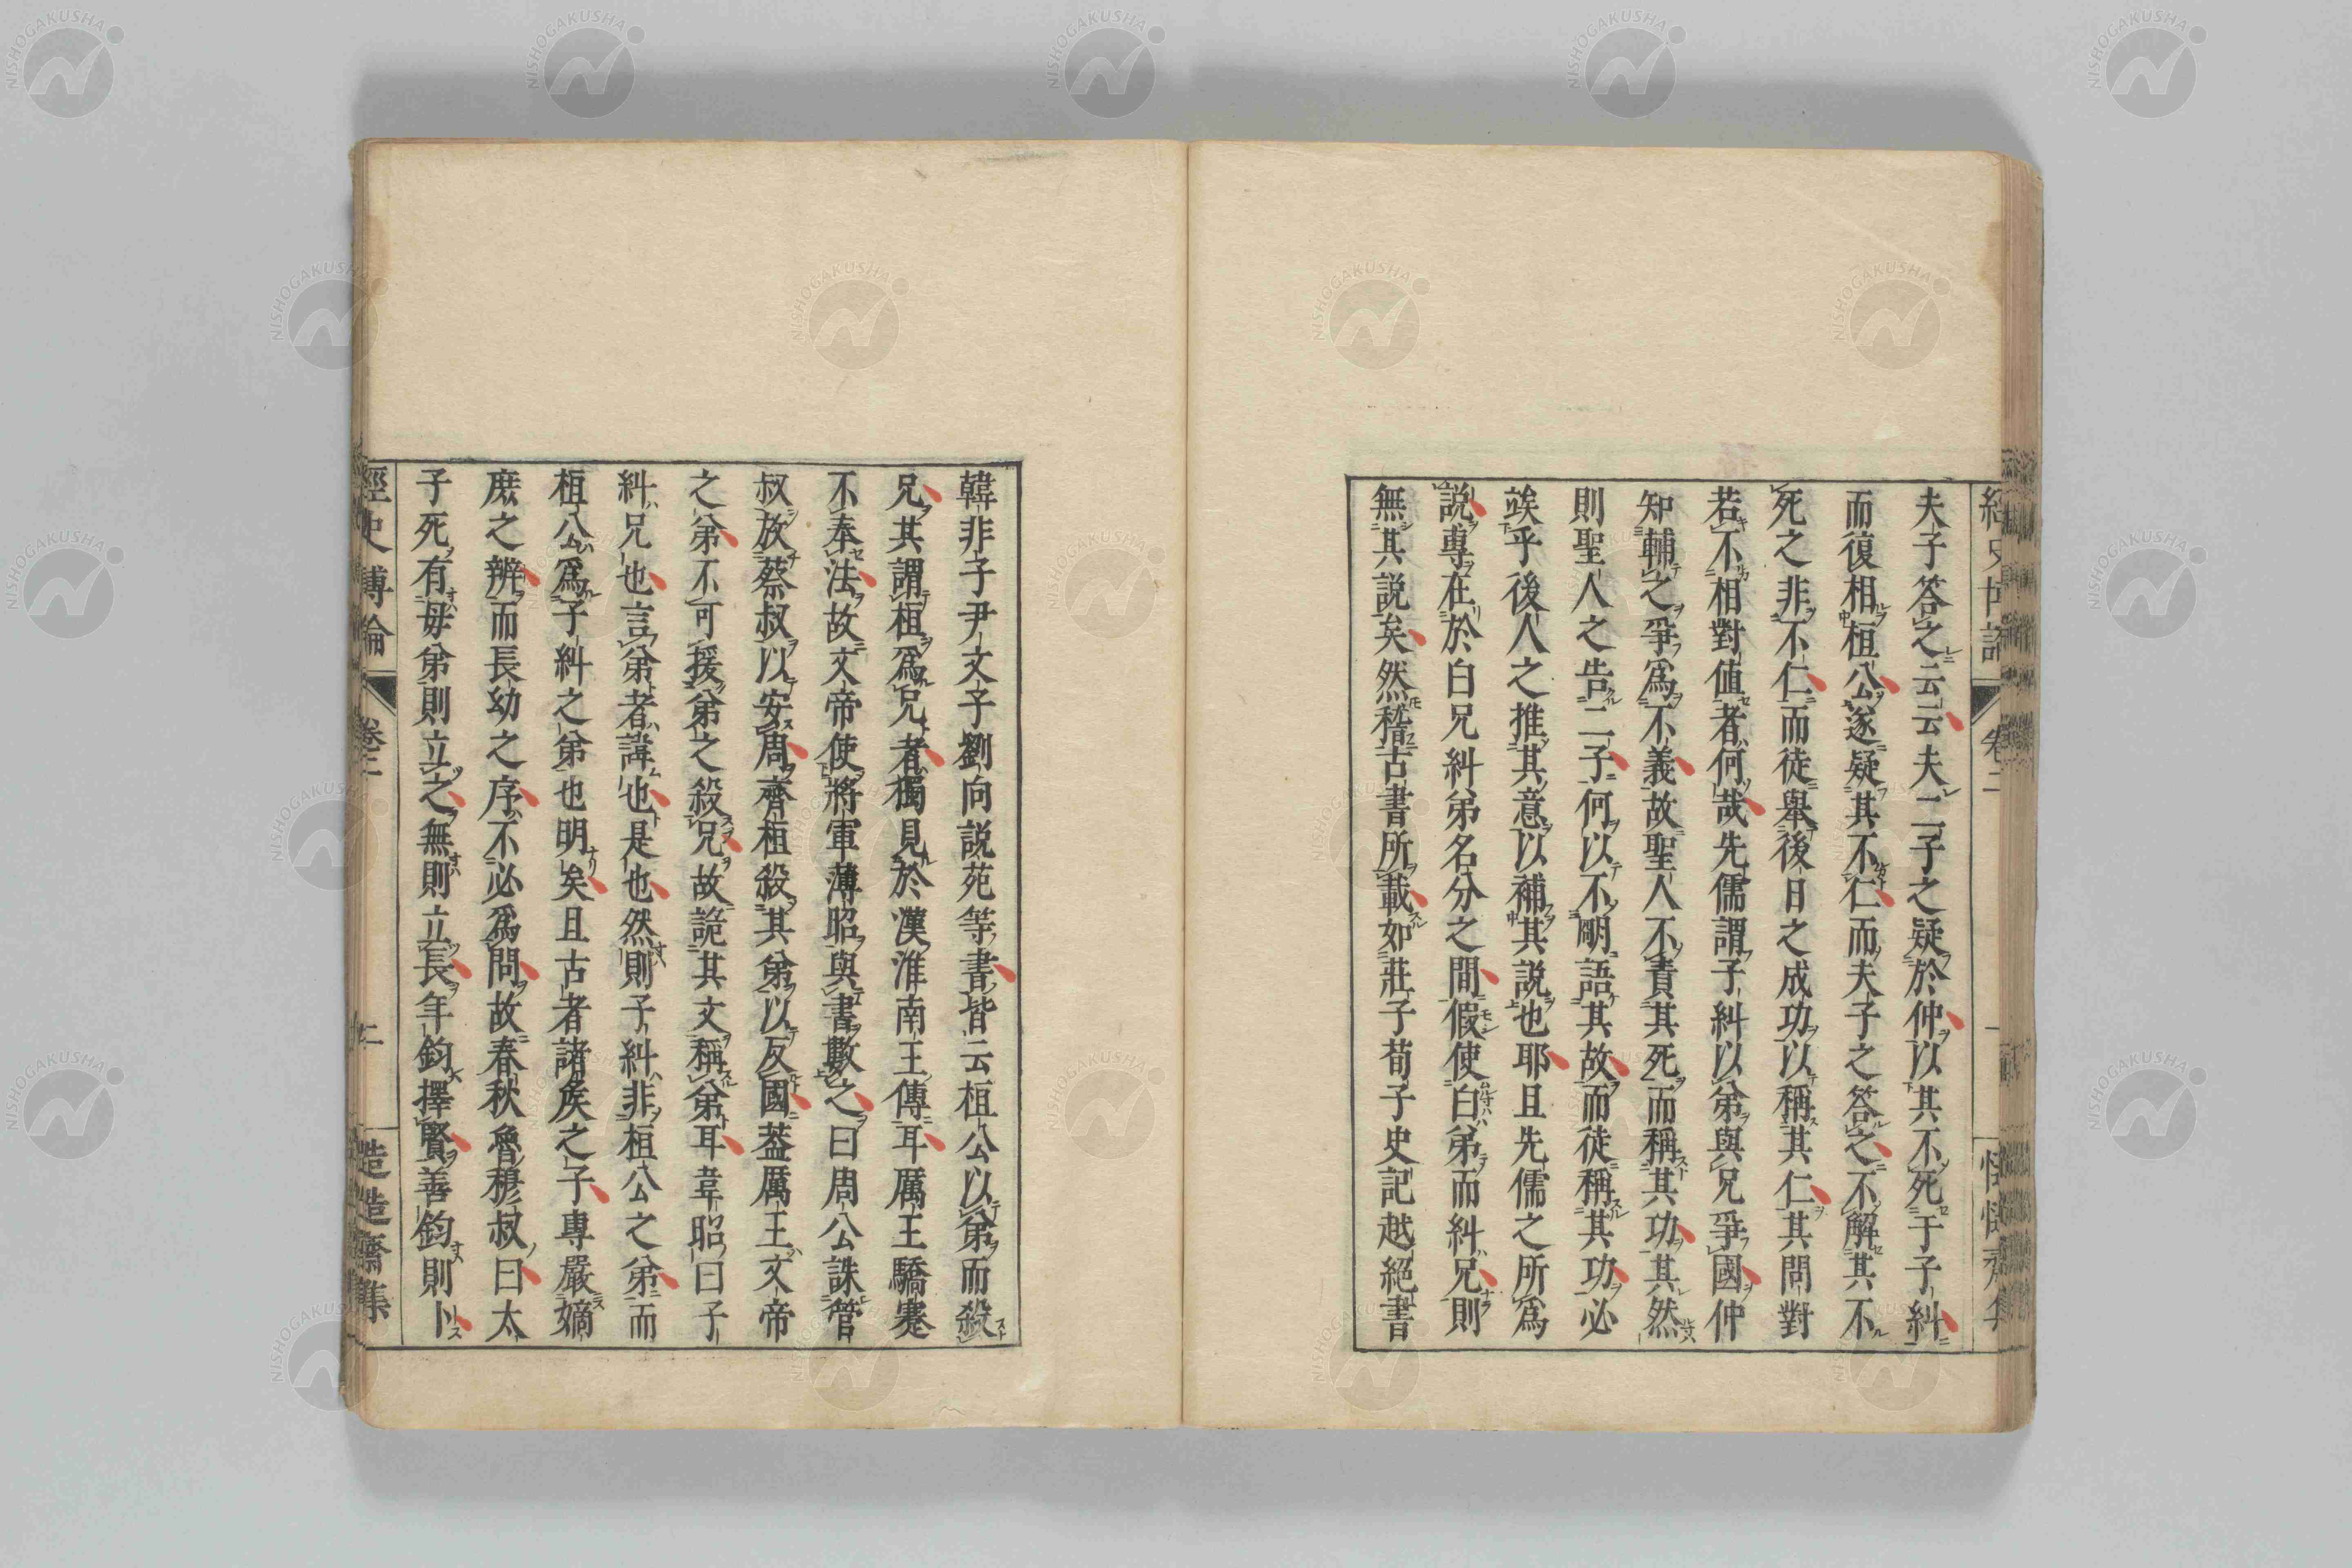 夫子答之云云夫二子之疑於仲以其不死于子糾
而復相桓公遂疑其不仁而夫子之答之不解其不
死之非不仁而徒舉後日之成功以稱其仁其問對
若不相對値者何哉先儒謂子糾以弟與兄爭國仲
知輔之爭爲不義故聖人不責其死而稱其功其然
則聖人之告二子何以不明語其故而徒稱其功必
竢乎後人之推其意以補其説也耶且先儒之所爲
説專在於白兄糾弟名分之間假使白弟而糾兄則
無其説矣然稽古書所載如莊子荀子史記越絕書
韓非子尹文子劉向説苑等書皆云桓公以弟而殺
兄其謂桓爲兄者獨見於漢淮南王傳耳厲王驕蹇
不奉法故文帝使將軍薄昭與書數之曰周公誅管
叔放蔡叔以安周齊桓殺其弟以反國葢厲王文帝
之弟不可援弟之殺兄故詭其文稱弟耳韋昭曰子
糾兄也言弟者諱也是也然則子糾非桓公之弟而
桓公爲子糾之弟也明矣且古者諸矦之子專嚴嫡
庶之辨而長幼之序不必爲問故春秋魯穆叔曰太
子死有毋弟則立之無則立長年鈞擇賢善鈞則卜
經史博論 卷二 二 慥慥齋集
NISHOGAKUSHA